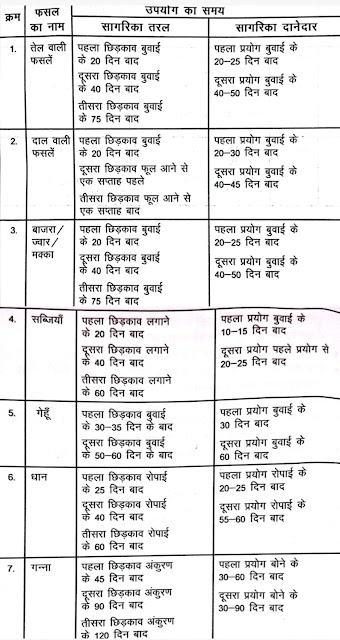 क्रम
फसल
का नाम
उपयोग का समय
सागरिका तरल
सागरिका दानेदार
1.
तेल वाली
फसलें
पहला छिड़काव बुवाई
के 20 दिन बाद
दूसरा छिड़काव बुवाई
के 40 दिन बाद
तीसरा छिड़काव बुवाई
के 75 दिन बाद
पहला प्रयोग बुवाई के
20–25 दिन बाद
दूसरा प्रयोग बुवाई के
40–50 दिन बाद
2.
दाल वाली
फसलें
पहला छिड़काव बुवाई
के 20 दिन बाद
दूसरा छिड़काव फूल आने से
एक सप्ताह पहले
तीसरा छिड़काव फूल आने से
एक सप्ताह बाद
पहला प्रयोग बुवाई के
20–30 दिन बाद
दूसरा प्रयोग बुवाई के
40–45 दिन बाद
3.
बाजरा/
ज्वार/
मक्का
पहला छिड़काव बुवाई
के 20 दिन बाद
दूसरा छिड़काव बुवाई
के 40 दिन बाद
तीसरा छिड़काव बुवाई
के 75 दिन बाद
पहला प्रयोग बुवाई के
20–25 दिन बाद
दूसरा प्रयोग बुवाई के
40–50 दिन बाद
4.
सब्जियाँ
पहला छिड़काव लगाने
के 20 दिन बाद
दूसरा छिड़काव लगाने
के 40 दिन बाद
तीसरा छिड़काव लगाने
के 60 दिन बाद
पहला प्रयोग बुवाई के
10–15 दिन बाद
दूसरा प्रयोग पहले प्रयोग से
20–25 दिन बाद
5.
गेहूँ
पहला छिड़काव बुवाई
के 30–35 दिन के बाद
दूसरा छिड़काव बुवाई
के 50–60 दिन के बाद
पहला प्रयोग बुवाई के
30 दिन बाद
दूसरा प्रयोग बुवाई के
60 दिन बाद
6.
धान
पहला छिड़काव रोपाई
के 25 दिन बाद
दूसरा छिड़काव रोपाई
के 40 दिन बाद
तीसरा छिड़काव रोपाई
के 60 दिन बाद
पहला प्रयोग रोपाई के
20–25 दिन बाद
दूसरा प्रयोग रोपाई के
55–60 दिन बाद
7.
गन्ना
पहला छिड़काव अंकुरण
के 45 दिन बाद
दूसरा छिड़काव अंकुरण
के 90 दिन बाद
तीसरा छिड़काव अंकुरण
के 120 दिन बाद
पहला प्रयोग बोने के
30–60 दिन बाद
दूसरा प्रयोग बोने के
30–90 दिन बाद